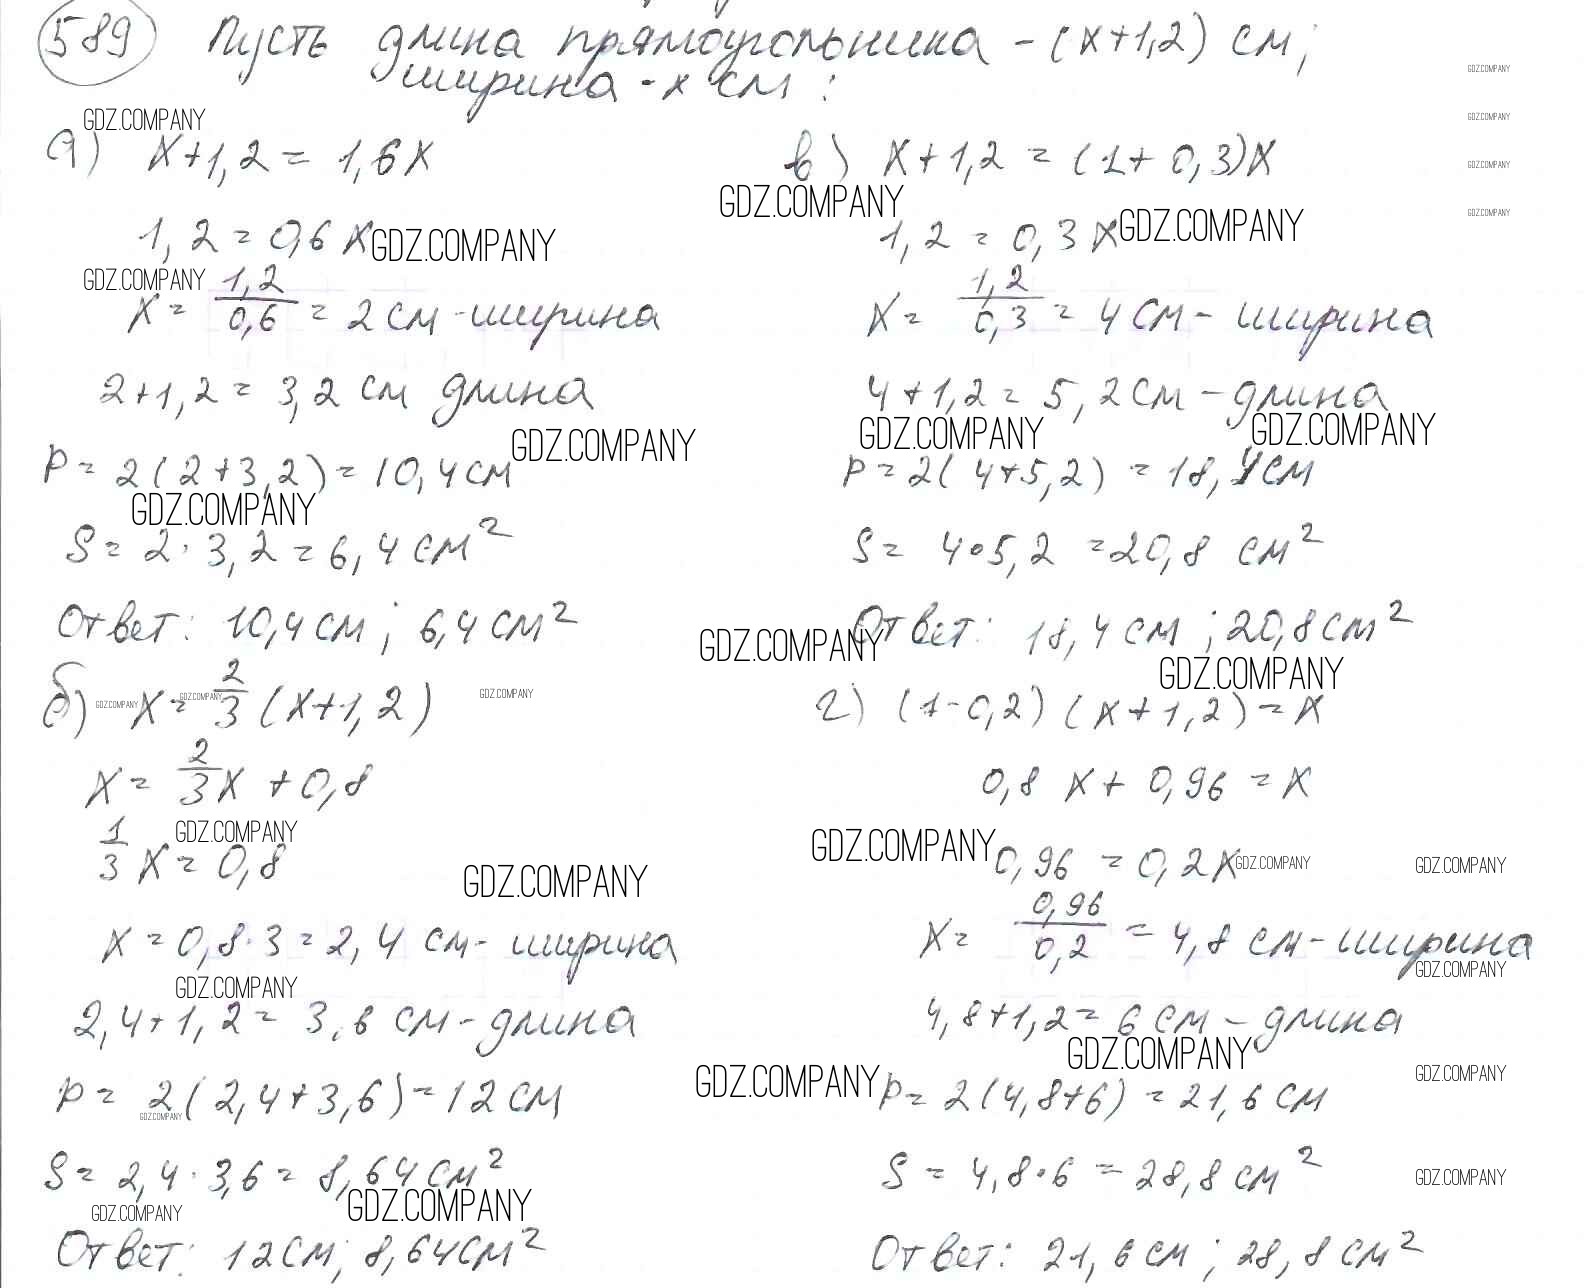 589 Пусть длина прямоугольника - (x+1,2) см;
ширина - x см:
GDZ.COMPANY
GDZ.COMPANY
GDZ.COMPANY
GDZ.COMPANY
GDZ.COMPANY
а) x+1,2 = 1,6x
1,2 = 0,6x GDZ.COMPANY
GDZ.COMPANY
x = 1,2/0,6 = 2 см - ширина
2+1,2 = 3,2 см длина
GDZ.COMPANY
P = 2(2+3,2) = 10,4 см
GDZ.COMPANY
S = 2·3,2 = 6,4 см²
Ответ: 10,4 см; 6,4 см²
б) x = 2/3 (x+1,2)
GDZ.COMPANY
GDZ.COMPANY
GDZ.COMPANY
x = 2/3x + 0,8
GDZ.COMPANY
1/3 x = 0,8
GDZ.COMPANY
x = 0,8·3 = 2,4 см - ширина
GDZ.COMPANY
2,4+1,2 = 3,6 см - длина
P = 2(2,4+3,6) = 12 см
GDZ.COMPANY
S = 2,4·3,6 = 8,64 см²
GDZ.COMPANY
GDZ.COMPANY
Ответ: 12 см; 8,64 см²
в) x+1,2 = (1+0,3)x
GDZ.COMPANY
1,2 = 0,3x GDZ.COMPANY
x = 1,2/0,3 = 4 см - ширина
4+1,2 = 5,2 см - длина
GDZ.COMPANY
GDZ.COMPANY
P = 2(4+5,2) = 18,4 см
S = 4·5,2 = 20,8 см²
Ответ: 18,4 см; 20,8 см²
GDZ.COMPANY
GDZ.COMPANY
г) (1-0,2)(x+1,2) = x
0,8x + 0,96 = x
GDZ.COMPANY
0,96 = 0,2x GDZ.COMPANY
GDZ.COMPANY
x = 0,96/0,2 = 4,8 см - ширина
GDZ.COMPANY
4,8+1,2 = 6 см - длина
GDZ.COMPANY
GDZ.COMPANY
GDZ.COMPANY
P = 2(4,8+6) = 21,6 см
S = 4,8·6 = 28,8 см²
GDZ.COMPANY
Ответ: 21,6 см; 28,8 см²